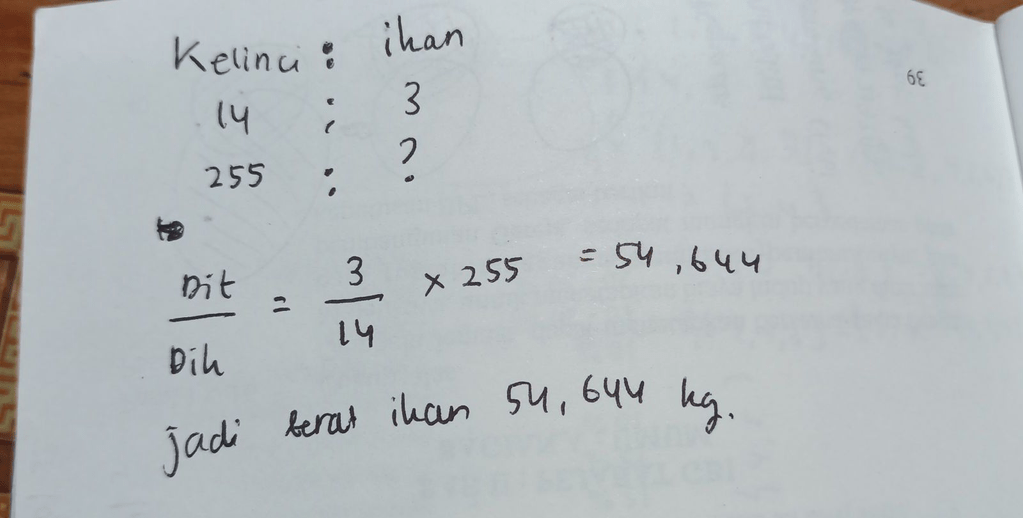 Kelinci : ikan
14 : 3
255 : ?
Dit = 3 × 255 = 54,644
Dik 14
jadi berat ikan 54,644 kg.
39